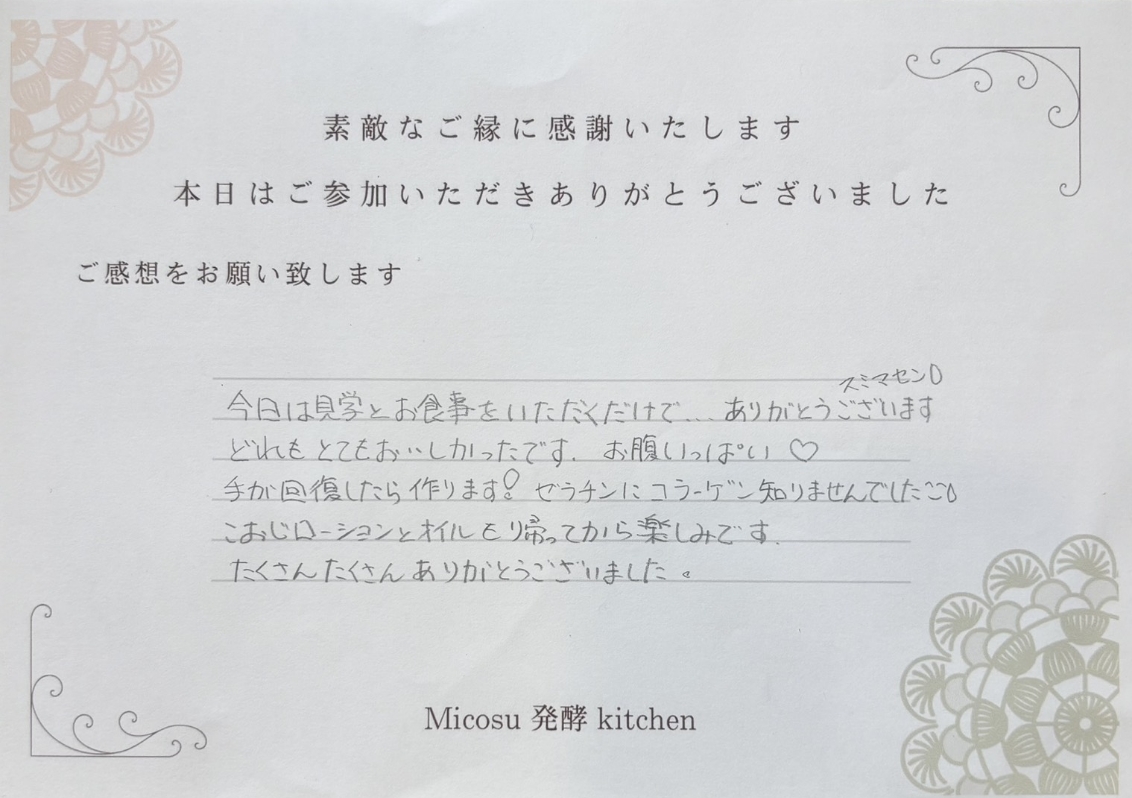 素敵なご縁に感謝いたします
本日はご参加いただきありがとうございました
ご感想をお願い致します
スミマセン
今日は見学とお食事をいただくだけで... ありがとうございます
どれもとてもおいしかったです. お腹いっぱい♡
手が回復したら作ります! ゼラチンにコラーゲン知りませんでした
こおじローションとオイルも帰ってから楽しみです.
たくさんたくさんありがとうございました。
Micosu 発酵 kitchen